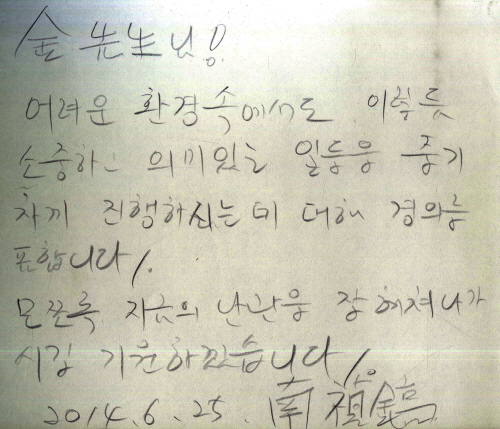 金 先生님!
어려운 환경속에서도 이렇듯
소중하고 의미있는 일들을 줄기
차게 진행하시는데 대해 경의를
표합니다.
모쪼록 지금의 난관을 잘 헤쳐나가
시길 기원하겠습니다.
2014. 6. 25. 南